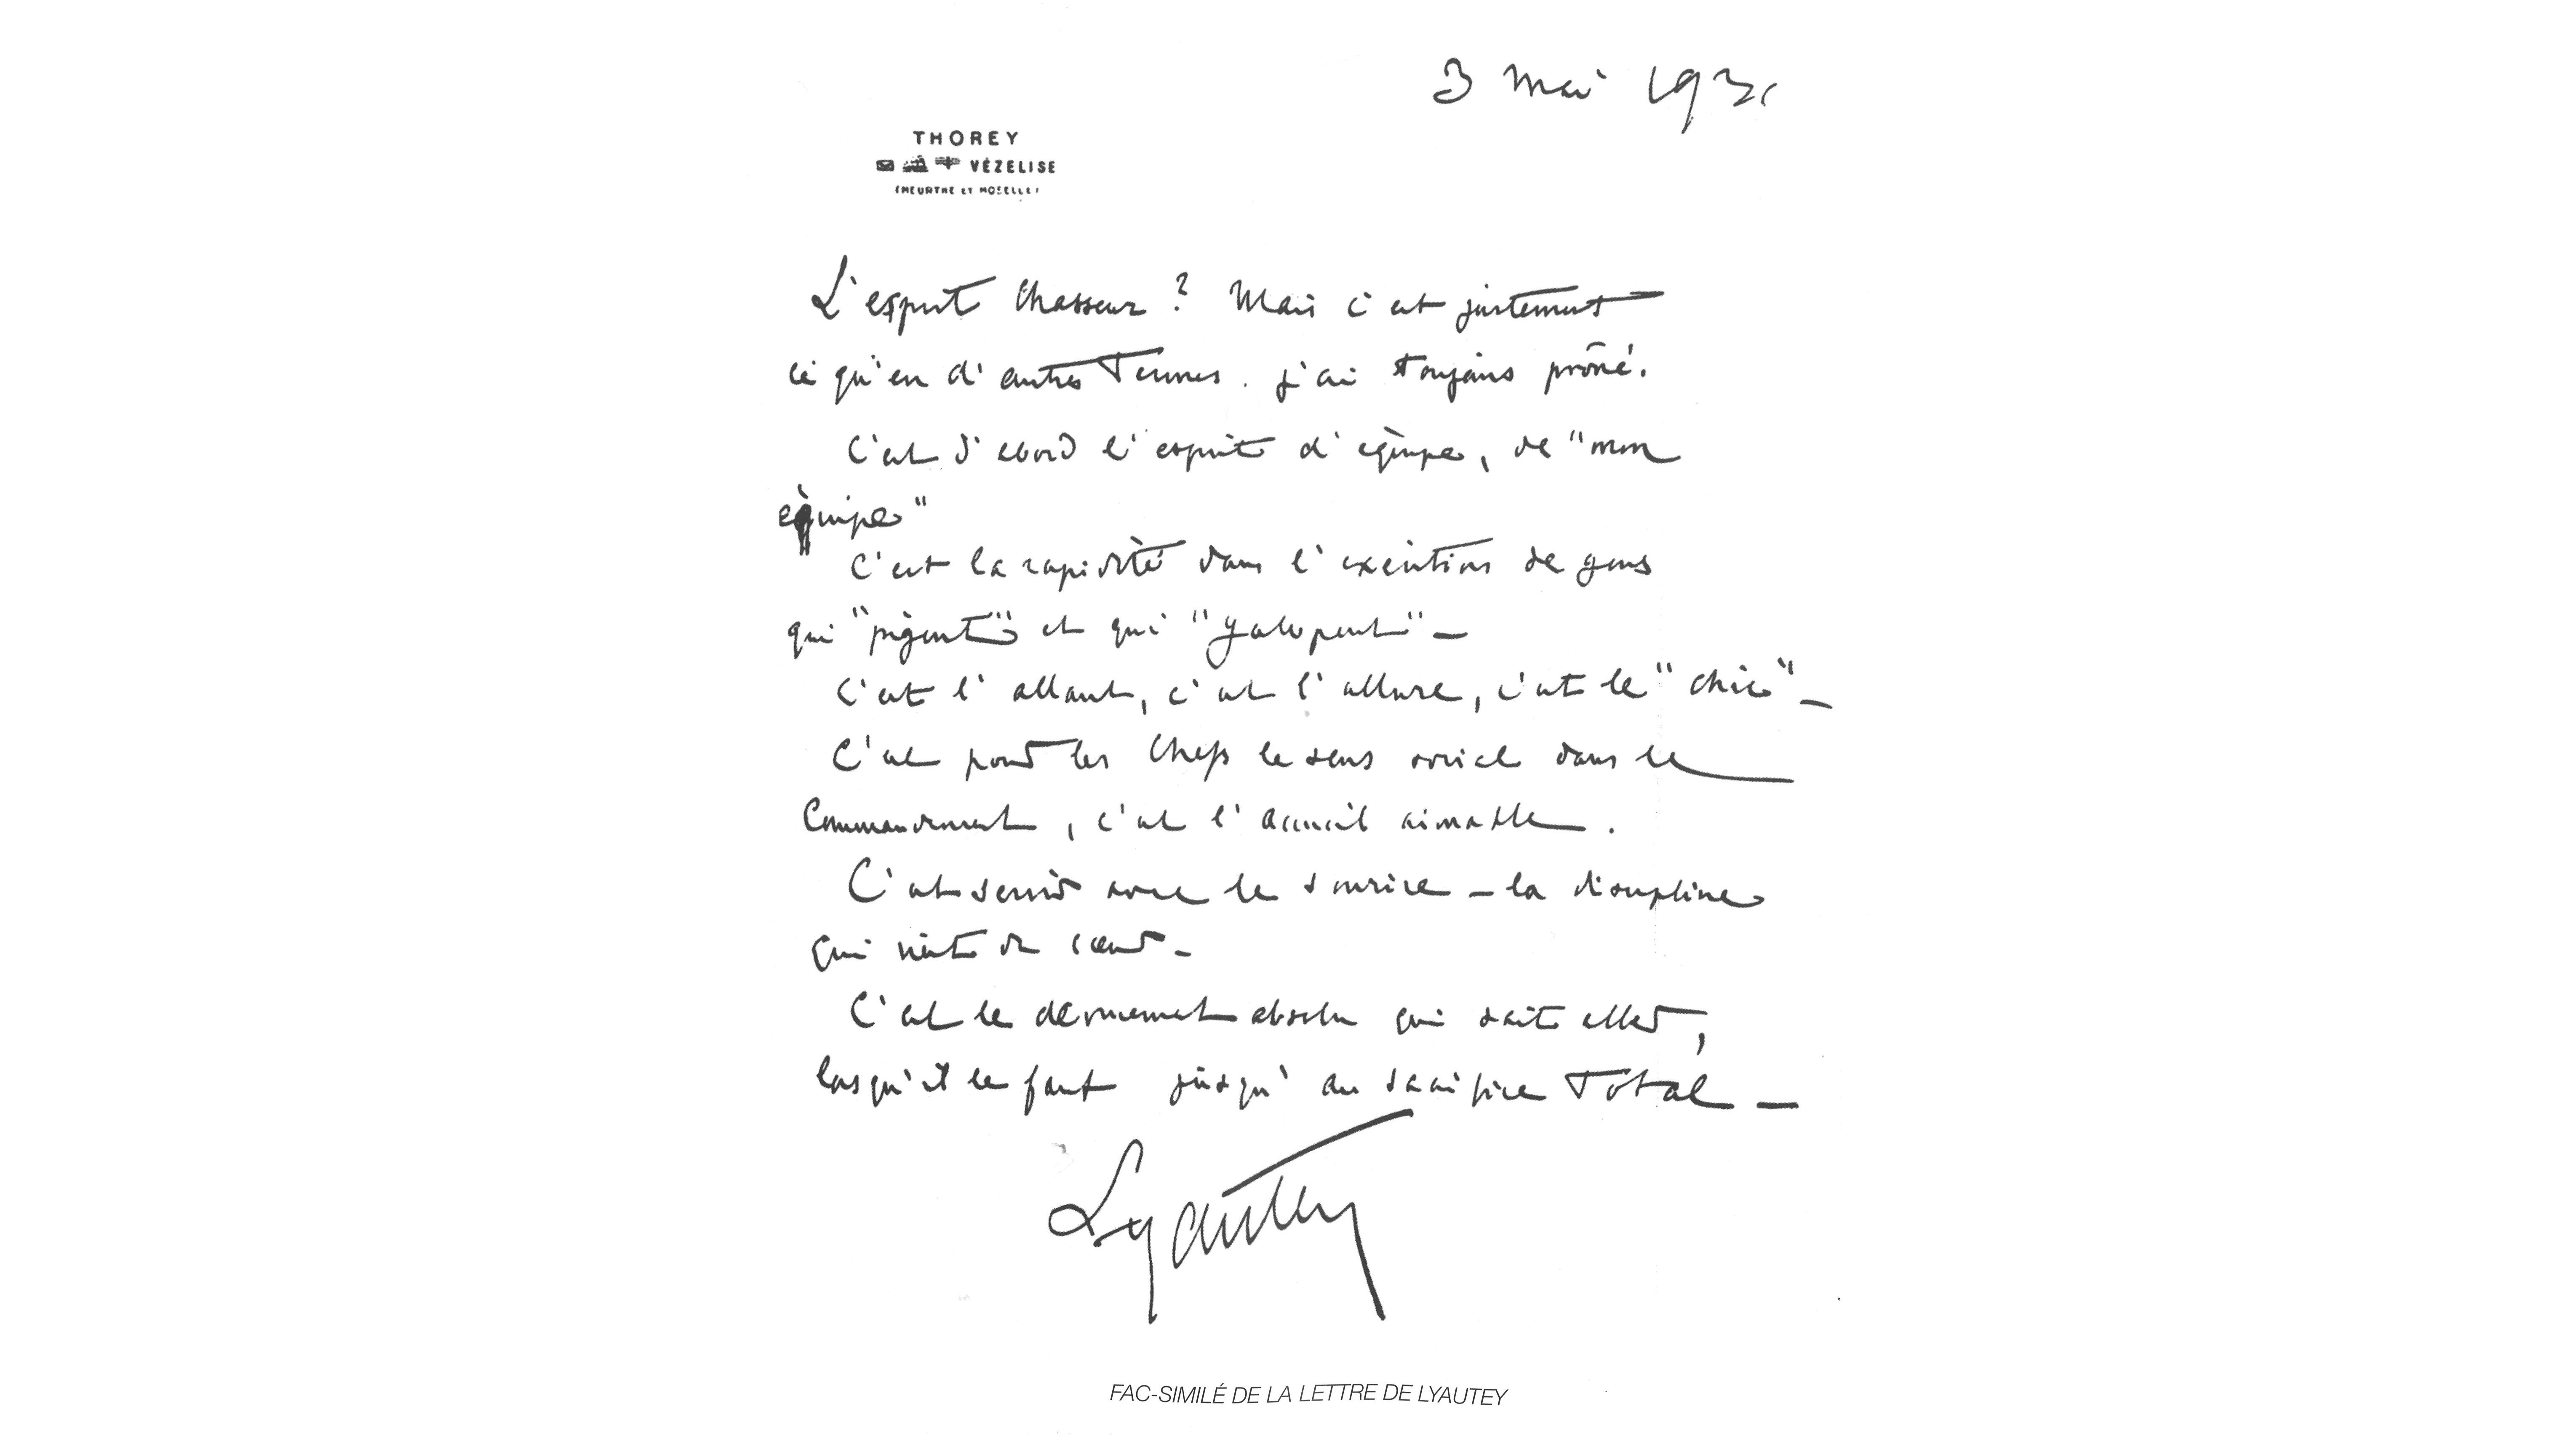 3 mai 1931
THOREY
VÉZELISE
(MEURTHE ET MOSELLE)
L'esprit Chasseur ? Mais c'est justement
ce qu'en d'autres Termes. j'ai toujours prôné.
C'est d'abord l'esprit d'équipe, de "mon
équipe"
C'est la rapidité dans l'exécution de gens
qui "pigent" et qui "galopent" –
C'est l'allant, c'est l'allure, c'est le "chic" –
C'est pour les Chefs le sens social dans le
Commandement, c'est l'accueil aimable.
C'est servir avec le sourire – la discipline
qui vient du cœur –
C'est le dévouement absolu qui sait aller,
lorsqu'il le faut jusqu'au sacrifice Total –
Lyautey
FAC-SIMILÉ DE LA LETTRE DE LYAUTEY